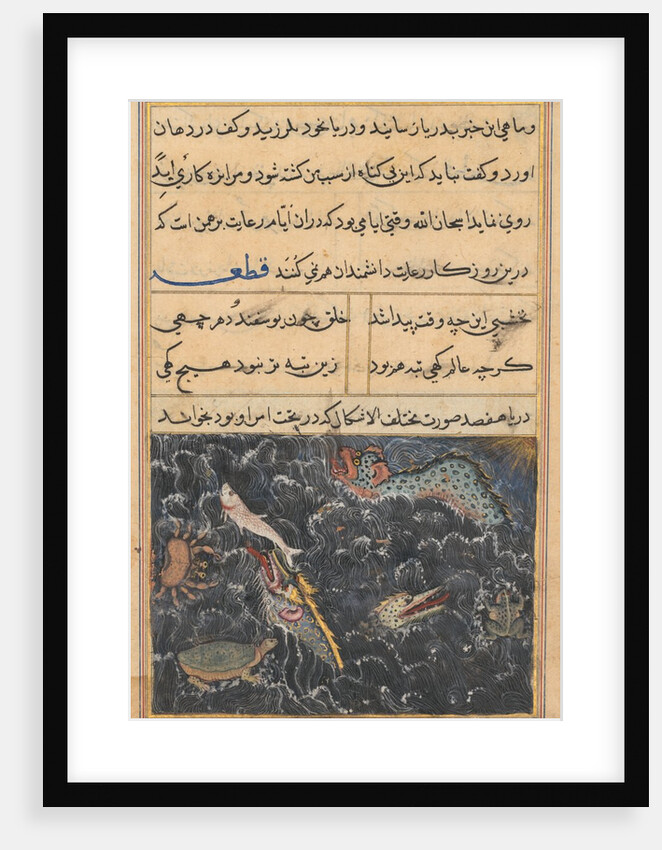 و ماهی این خبر بدریا رسانید و دریا بخود بلرزید و کف در دهان
اورد و گفت نباید که این بی گناه از سبب من کشته شود و مرا بزه کاری ابد
روی نماید اسبحان الله وقتی ایامی بود که دران ایام رعایت برهمن است که
درین روزگار رعایت دانشمندان هم نمی کنند قطعه
نخشبی این چه وقت پیدا شد خلق چون یوسفند دهر چهی
گرچه عالم گهی تبه هم بود زین تبه تر نبود هیچ گهی
دریا هفصد صورت مختلف الاشکال که در تحت امر او بود بخواند